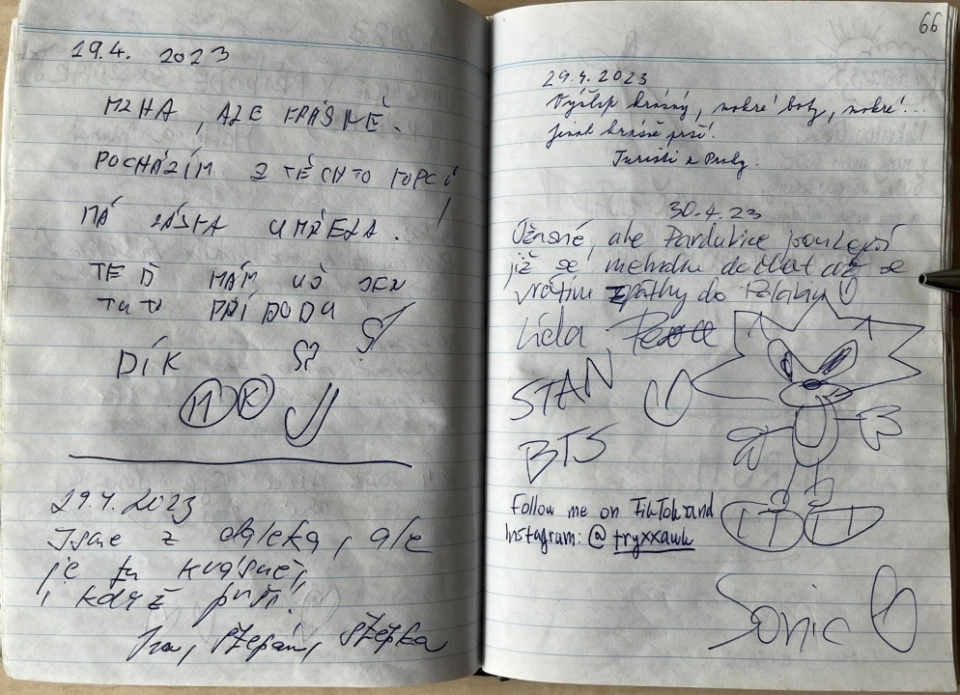 19.4. 2023
MLHA, ALE KRÁSNĚ.
POCHÁZÍM Z TĚCHTO KOPCŮ
MÁ LÁSKA UMŘELA.
TEĎ MÁM UŽ JEN
TUTO PŘÍRODU
DÍK
M K
29.4.2023
Jsme z daleka, ale
je tu krásně,
i když prší.
Iva, Štěpán, Štěpka
66
29.4.2023
Výšlap krásný, mokré boty, mokré!...
Jinak krásně prší.
Turisti z Prahy.
30.4.23
Úžasné, ale Pardubice
již se nemohu dočkat až se
vrátím zpátky do
Lída
STAN
BTS
Follow me on TikTok and
Instagram: @tryxxawk
Sonic